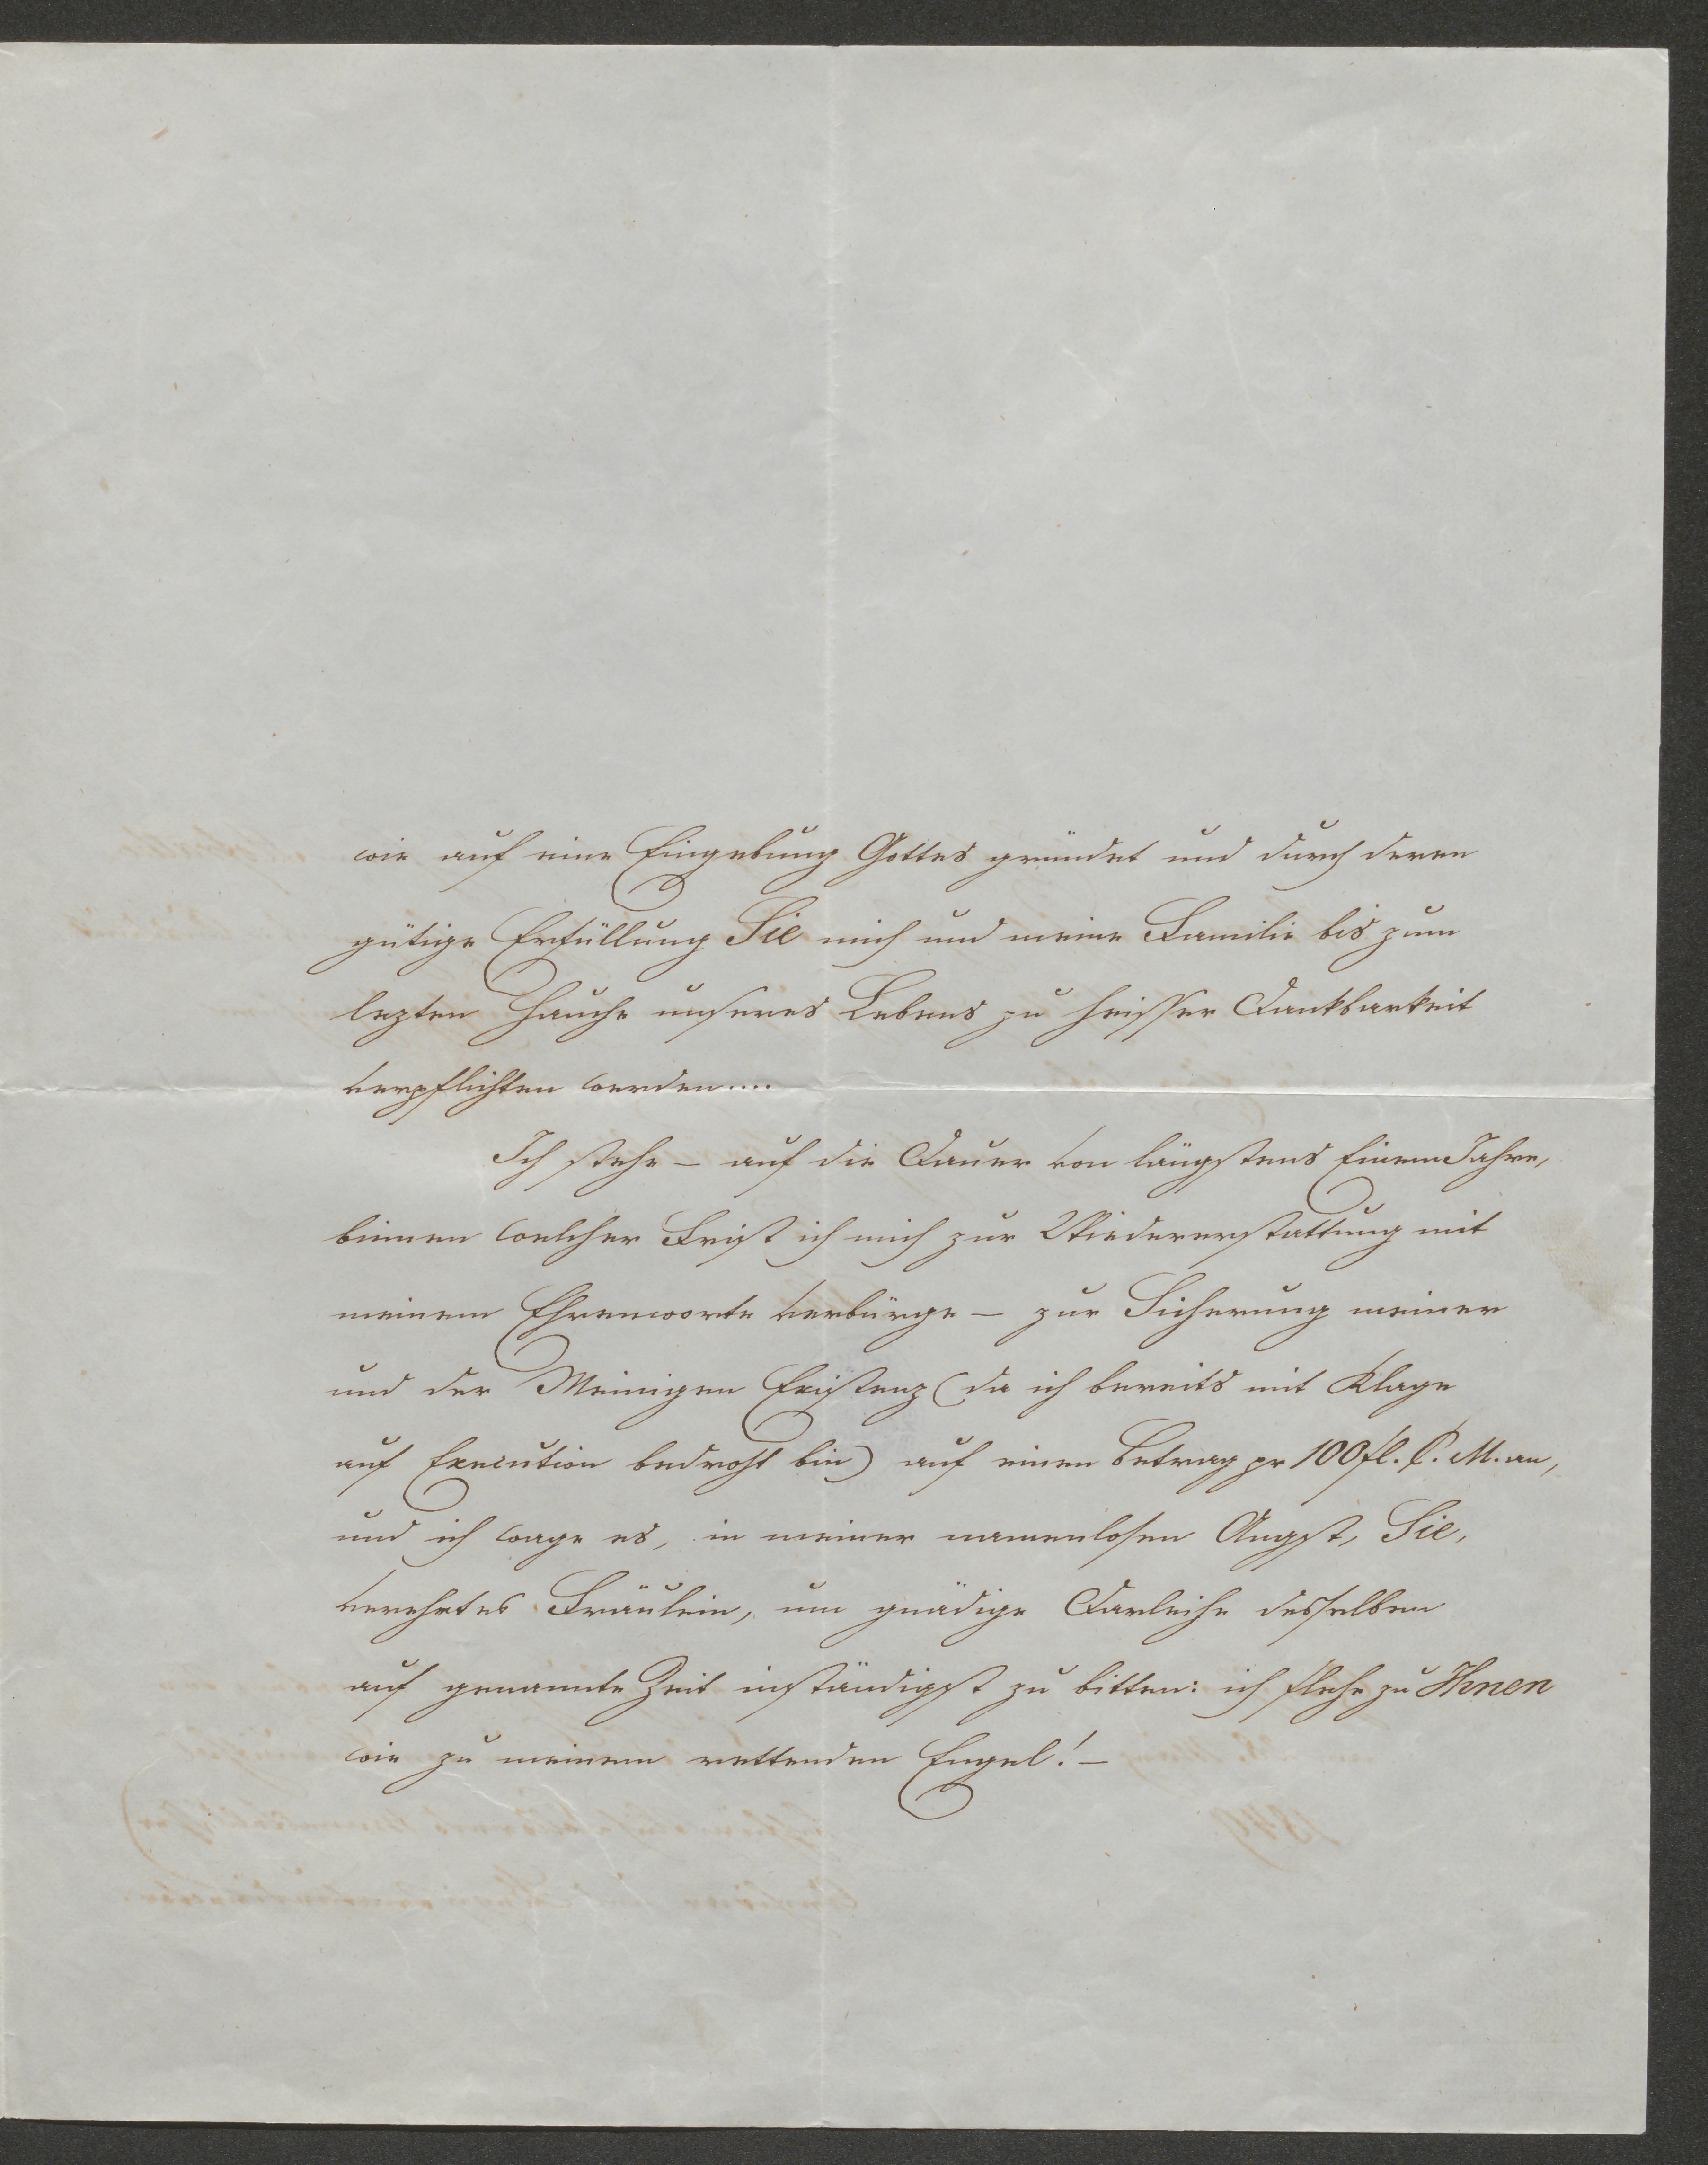 wie auf eine Eingebung Gottes gründet und durch deren
gütige Erfüllung Sie mich und meine Familie bis zum
lezten Hauche unseres Lebens zu heisser Dankbarkeit
verpflichten werden....
Ich stehe – auf die Dauer von längstens Einem Jahre,
binnen welcher Frist ich mich zur Wiedererstattung mit
meinem Ehrenworte verbürge – zur Sicherung meiner
und der Meinigen Existenz (da ich bereits mit Klage
auf Execution bedroht bin) auf einen Betrag pr 100 fl. C. M. an,
und ich wage es, in meiner namenlosen Angst, Sie,
verehrtes Fräulein, um gnädige Darleihe desselben
auf genannte Zeit inständigst zu bitten: ich flehe zu Ihnen
wie zu meinem rettenden Engel! –